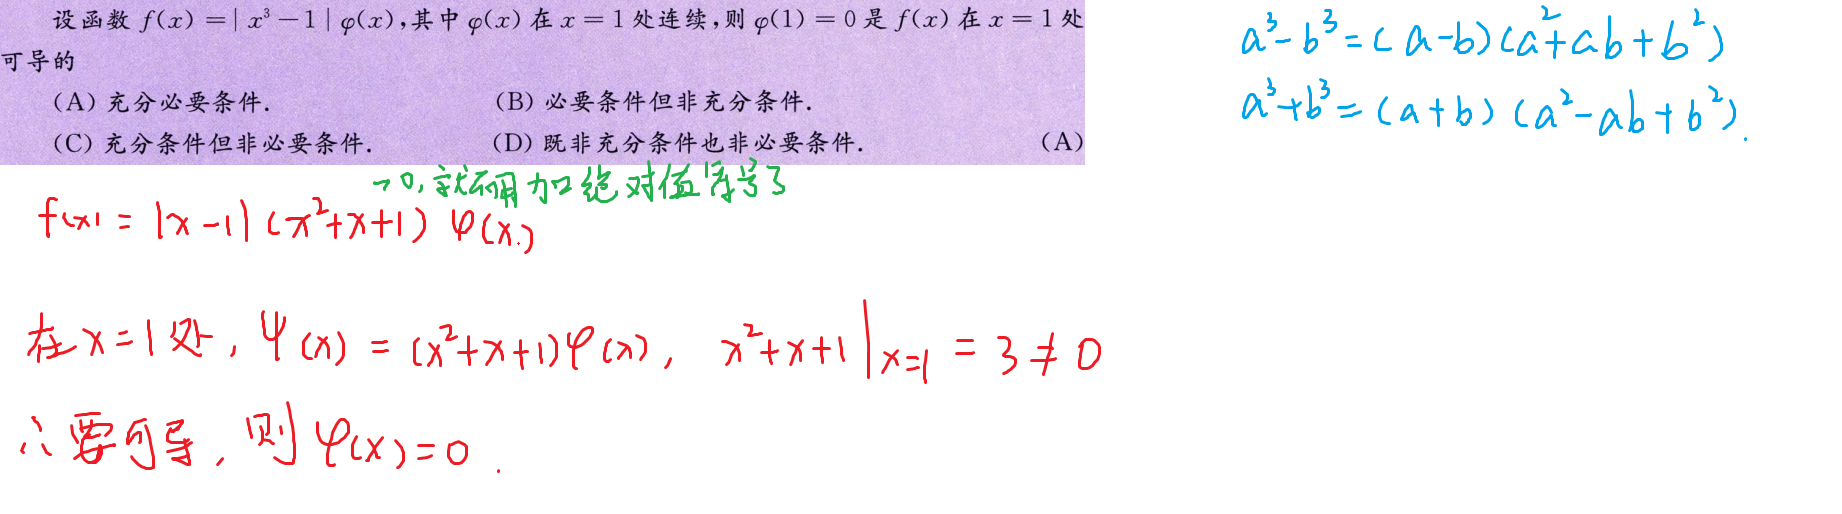 设函数 f(x) = | x³ − 1 | φ(x),其中 φ(x) 在 x = 1 处连续,则 φ(1) = 0 是 f(x) 在 x = 1 处
可导的
(A) 充分必要条件.	(B) 必要条件但非充分条件.
(C) 充分条件但非必要条件.	(D) 既非充分条件也非必要条件.	(A)
a³-b³=(a-b)(a²+ab+b²)
a³+b³=(a+b)(a²-ab+b²).
>0,就不用加绝对值符号了
f(x)=|x-1|(x²+x+1)φ(x)
在x=1处, ψ(x)=(x²+x+1)φ(x), x²+x+1|x=1 = 3≠0
∴要可导,则φ(x)=0.